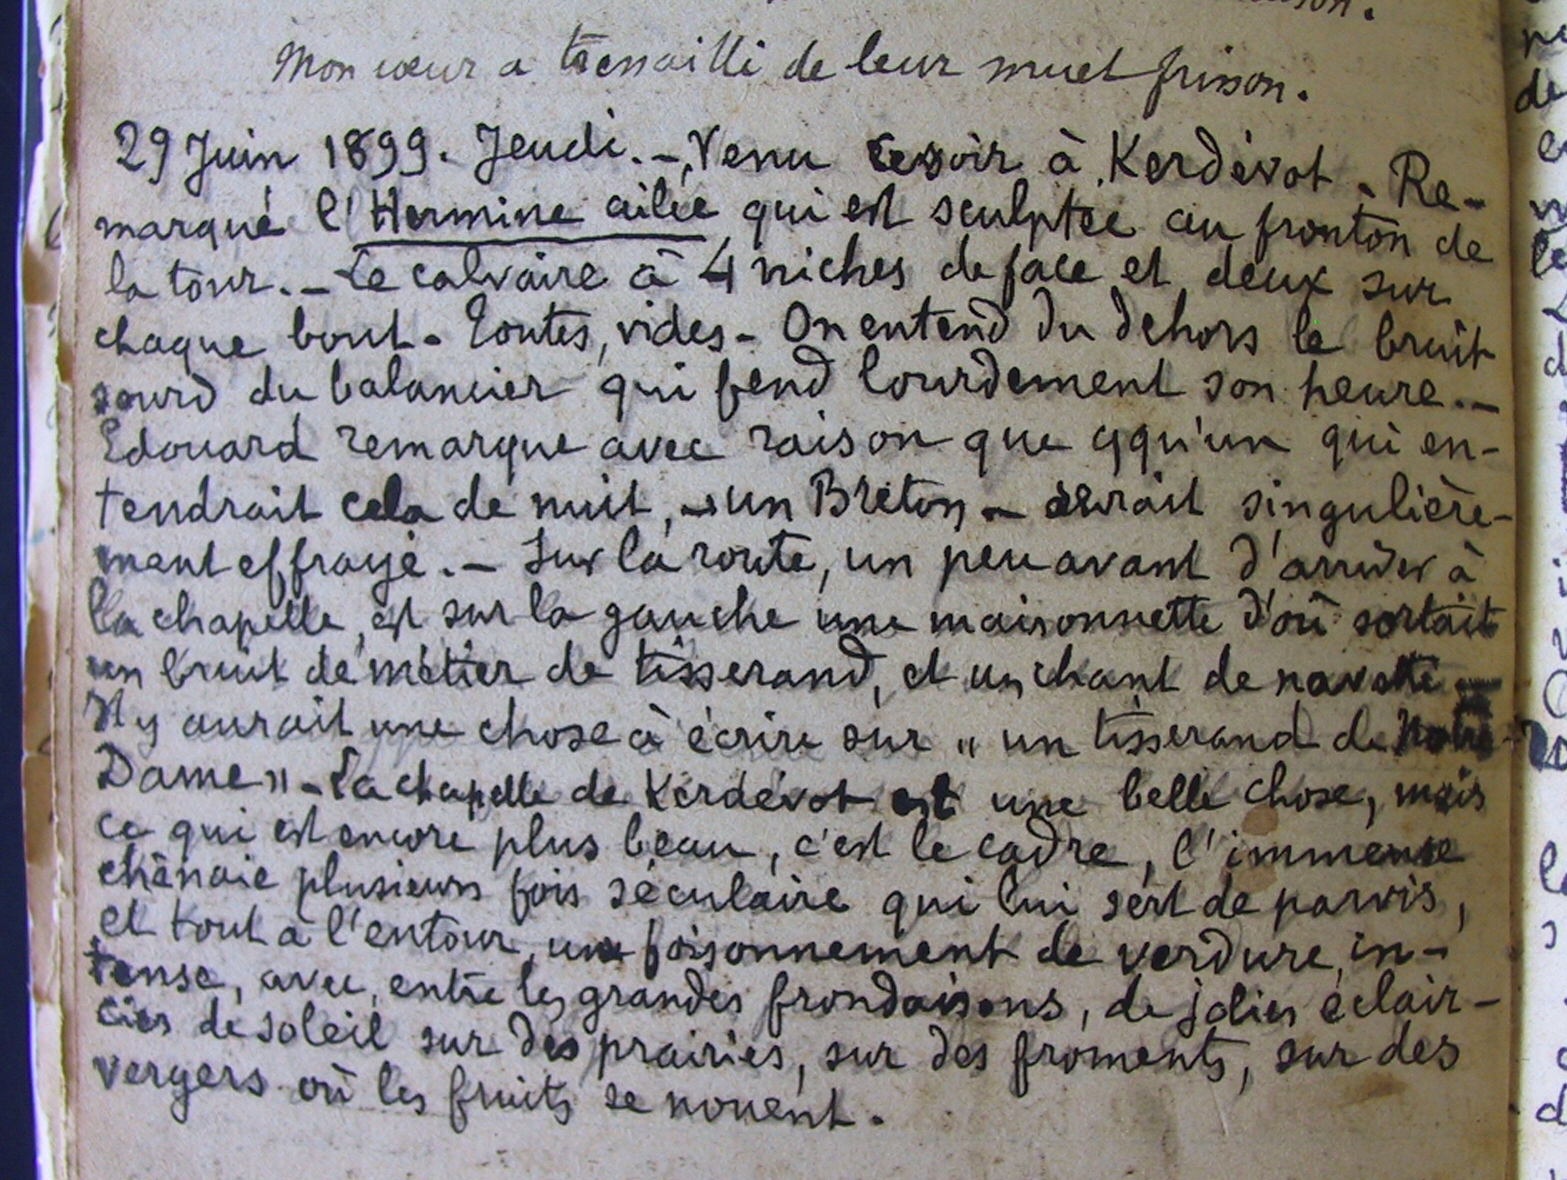 Mon cœur a tressailli de leur muet frisson.
29 Juin 1899. Jeudi. - Venu ce soir à Kerdévot. Re-
marqué l'Hermine ailée qui est sculptée au fronton de
la tour. - Le calvaire a 4 niches de face et deux sur
chaque bout. Toutes vides - On entend du dehors le bruit
sourd du balancier qui fend lourdement son heure. -
Edouard remarque avec raison que qqu'un qui en-
tendrait cela de nuit, - un Breton - serait singulière-
ment effrayé. - Sur la route, un peu avant d'arriver à
la chapelle, est sur la gauche une maisonnette d'où sortait
un bruit de métier de tisserand, et un chant de navette
Il y aurait une chose à écrire sur "un tisserand de Notre-
Dame" - La chapelle de Kerdévot est une belle chose, mais
ce qui est encore plus beau, c'est le cadre, l'immense
chênaie plusieurs fois séculaire qui lui sert de parvis,
et tout à l'entour, un foisonnement de verdure in-
tense, avec, entre les grandes frondaisons, de jolies éclair-
cies de soleil sur des prairies, sur des froments, sur des
vergers où les fruits se nouent.